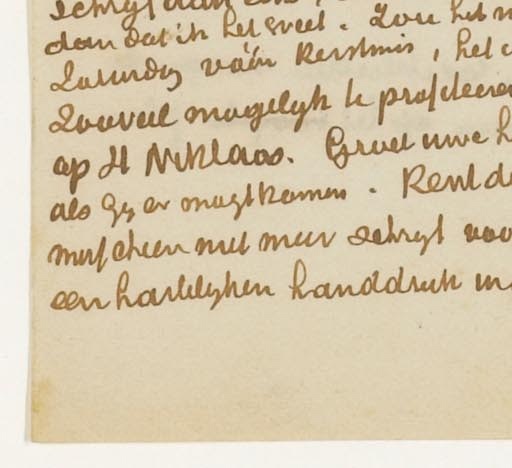 schryf dan
dan dat ik het weet. Zou het n
Zaterdag vóór Kerstmis, het
Zooveel mogelyk te profiteeren
op St Niklaas. Groet uwe h
als Gy er mogt komen. Rent de
misschien niet meer schryf voo
een hartelyken handdruk in